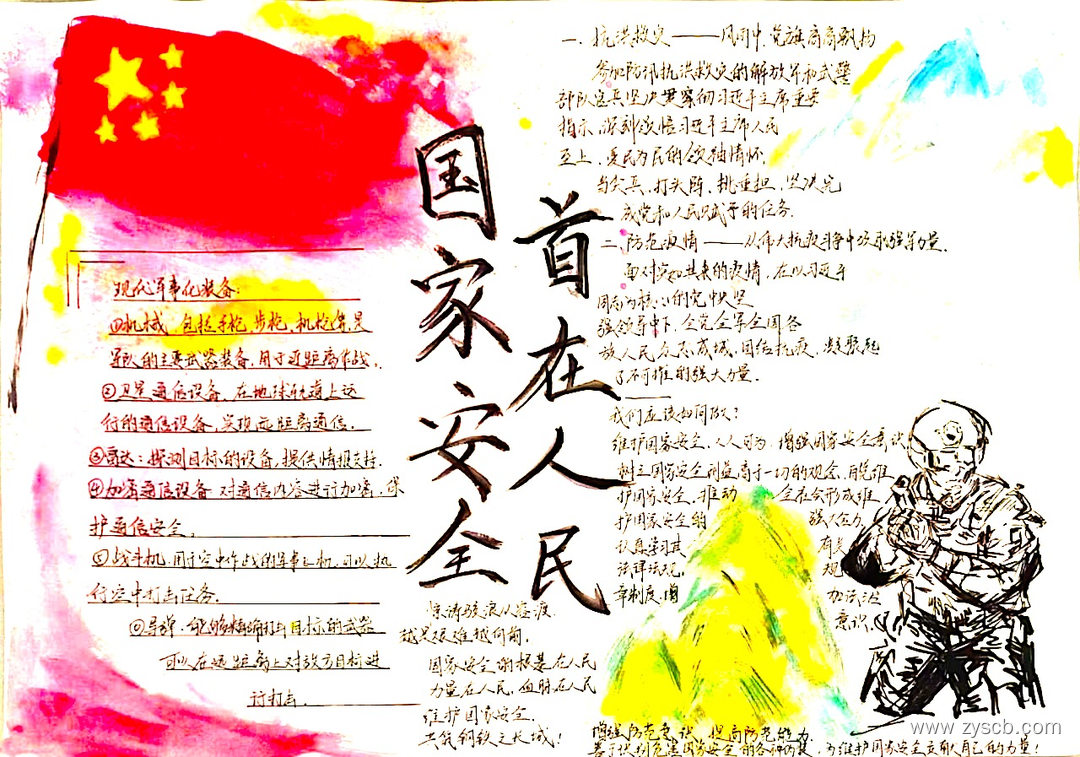 国家安全
首在人民
现代军事化装备:
①机械 包括手枪、步枪、机枪等,是
军队的主要武器装备,用于近距离作战.
②卫星通信设备 在地球轨道上运
行的通信设备,实现远距离通信.
③雷达:探测目标的设备,提供情报支持.
④加密通信设备 对通信内容进行加密,保
护通信安全.
战斗机,用于空中作战的军事飞机,可以执
行空中打击任务.
导弹.能够精确打击目标的武器
可以在远距离上对敌方目标进
行打击.
惊涛骇浪从容渡
越是艰难越向前.
国家安全的根基在人民
力量在人民,血脉在人民
维护国家安全.
共筑钢铁之长城!
一、抗洪救灾——风雨中,党旗高高飘扬
参加防汛抗洪救灾的解放军和武警
部队官兵坚决贯彻习近平主席重要
指示,深刻领悟习近平主席人民
至上、爱民为民的领袖情怀.
当尖兵,打头阵,挑重担,坚决完
成党和人民赋予的任务.
二、防范疫情——从伟大抗疫斗争中汲取强劲力量.
面对突如其来的疫情,在以习近平
同志为核心的党中央坚
强领导下,全党全军全国各
族人民众志成城,团结抗疫,凝聚起
了不可摧的强大力量.
我们应该如何做?
维护国家安全,人人可为,增强国家安全意识
树立国家安全利益高于一切的观念,自觉维
护国家安全,推动 全社会形成维
护国家安全的 强大合力
认真学习其 有关
法律法规, 规
章制度,增 加强法
意识.
增强防范意识,提高防范能力.
善于识别危害国家安全的各种伪装,为维护国家安全贡献自己的力量!
www.zyscb.com